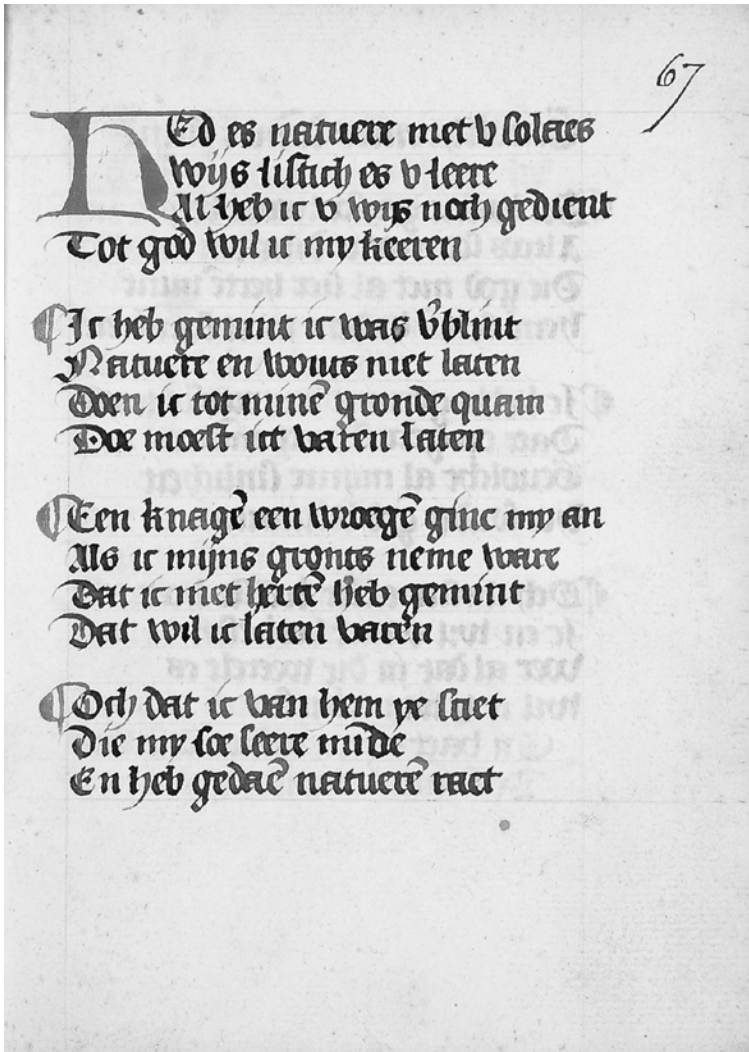 67
HEd es natuere met v solaes
Wijs listich es v leere
Al heb ic v wijs noch gedient
Tot god wil ic my keeren
¶ Ic heb gemint ic was v̄blint
Natuere en wouts niet laten
Doen ic tot minē gronde quam
Doe moest ict varen laten
¶ Een knagē een wroegē ginc my an
Als ic mijns gronts neme ware
Dat ic met hertē heb gemint
Dat wil ic laten varen
¶ Och dat ic van hem ye sciet
Die my soe seere mīde
En heb gedaē natuerē raet